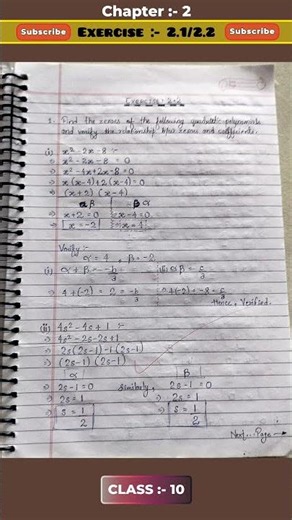 Chapter :- 2
Subscribe
EXERCISE :- 2.1/2.2
Subscribe
Exercise 2.2
1. Find the zeroes of the following quadratic polynomials
and verify the relationship b/w zeroes and coefficients.
(i) x² - 2x - 8 :-
⇒ x² - 2x - 8 = 0
⇒ x² - 4x + 2x - 8 = 0
⇒ x(x-4) + 2(x-4) = 0
⇒ (x+2) (x-4)
α β β α
⇒ x+2 = 0 ⇒ x-4 = 0
⇒ x = -2 ⇒ x = 4
Verify :-
α = 4 , β = -2
(i) α + β = -b/a (ii) αβ = c/a
⇒ 4 + (-2) = 2 = -b/a ⇒ 4(-2) = -8 = c/a
Hence, Verified.
(ii) 4s² - 4s + 1 :-
⇒ 4s² - 2s - 2s + 1
⇒ 2s(2s-1) - 1(2s-1)
⇒ (2s-1) (2s-1)
α β
⇒ 2s-1 = 0 Similarly, 2s-1 = 0
⇒ 2s = 1 ⇒ 2s = 1
⇒ s = 1/2 ⇒ s = 1/2
Next... Page →
CLASS :- 10